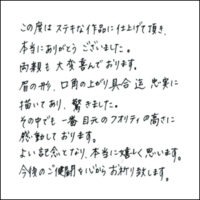 この度はステキな作品に仕上げて頂き、
本当にありがとうございました。
両親も大変喜んでおります。
眉の形、口角の上がり具合迄忠実に
描いてあり、驚きました。
その中でも一番目元のクオリティの高さに
感動しております。
よい記念となり、本当に嬉しく思います。
今後のご健闘を心からお祈り致します。